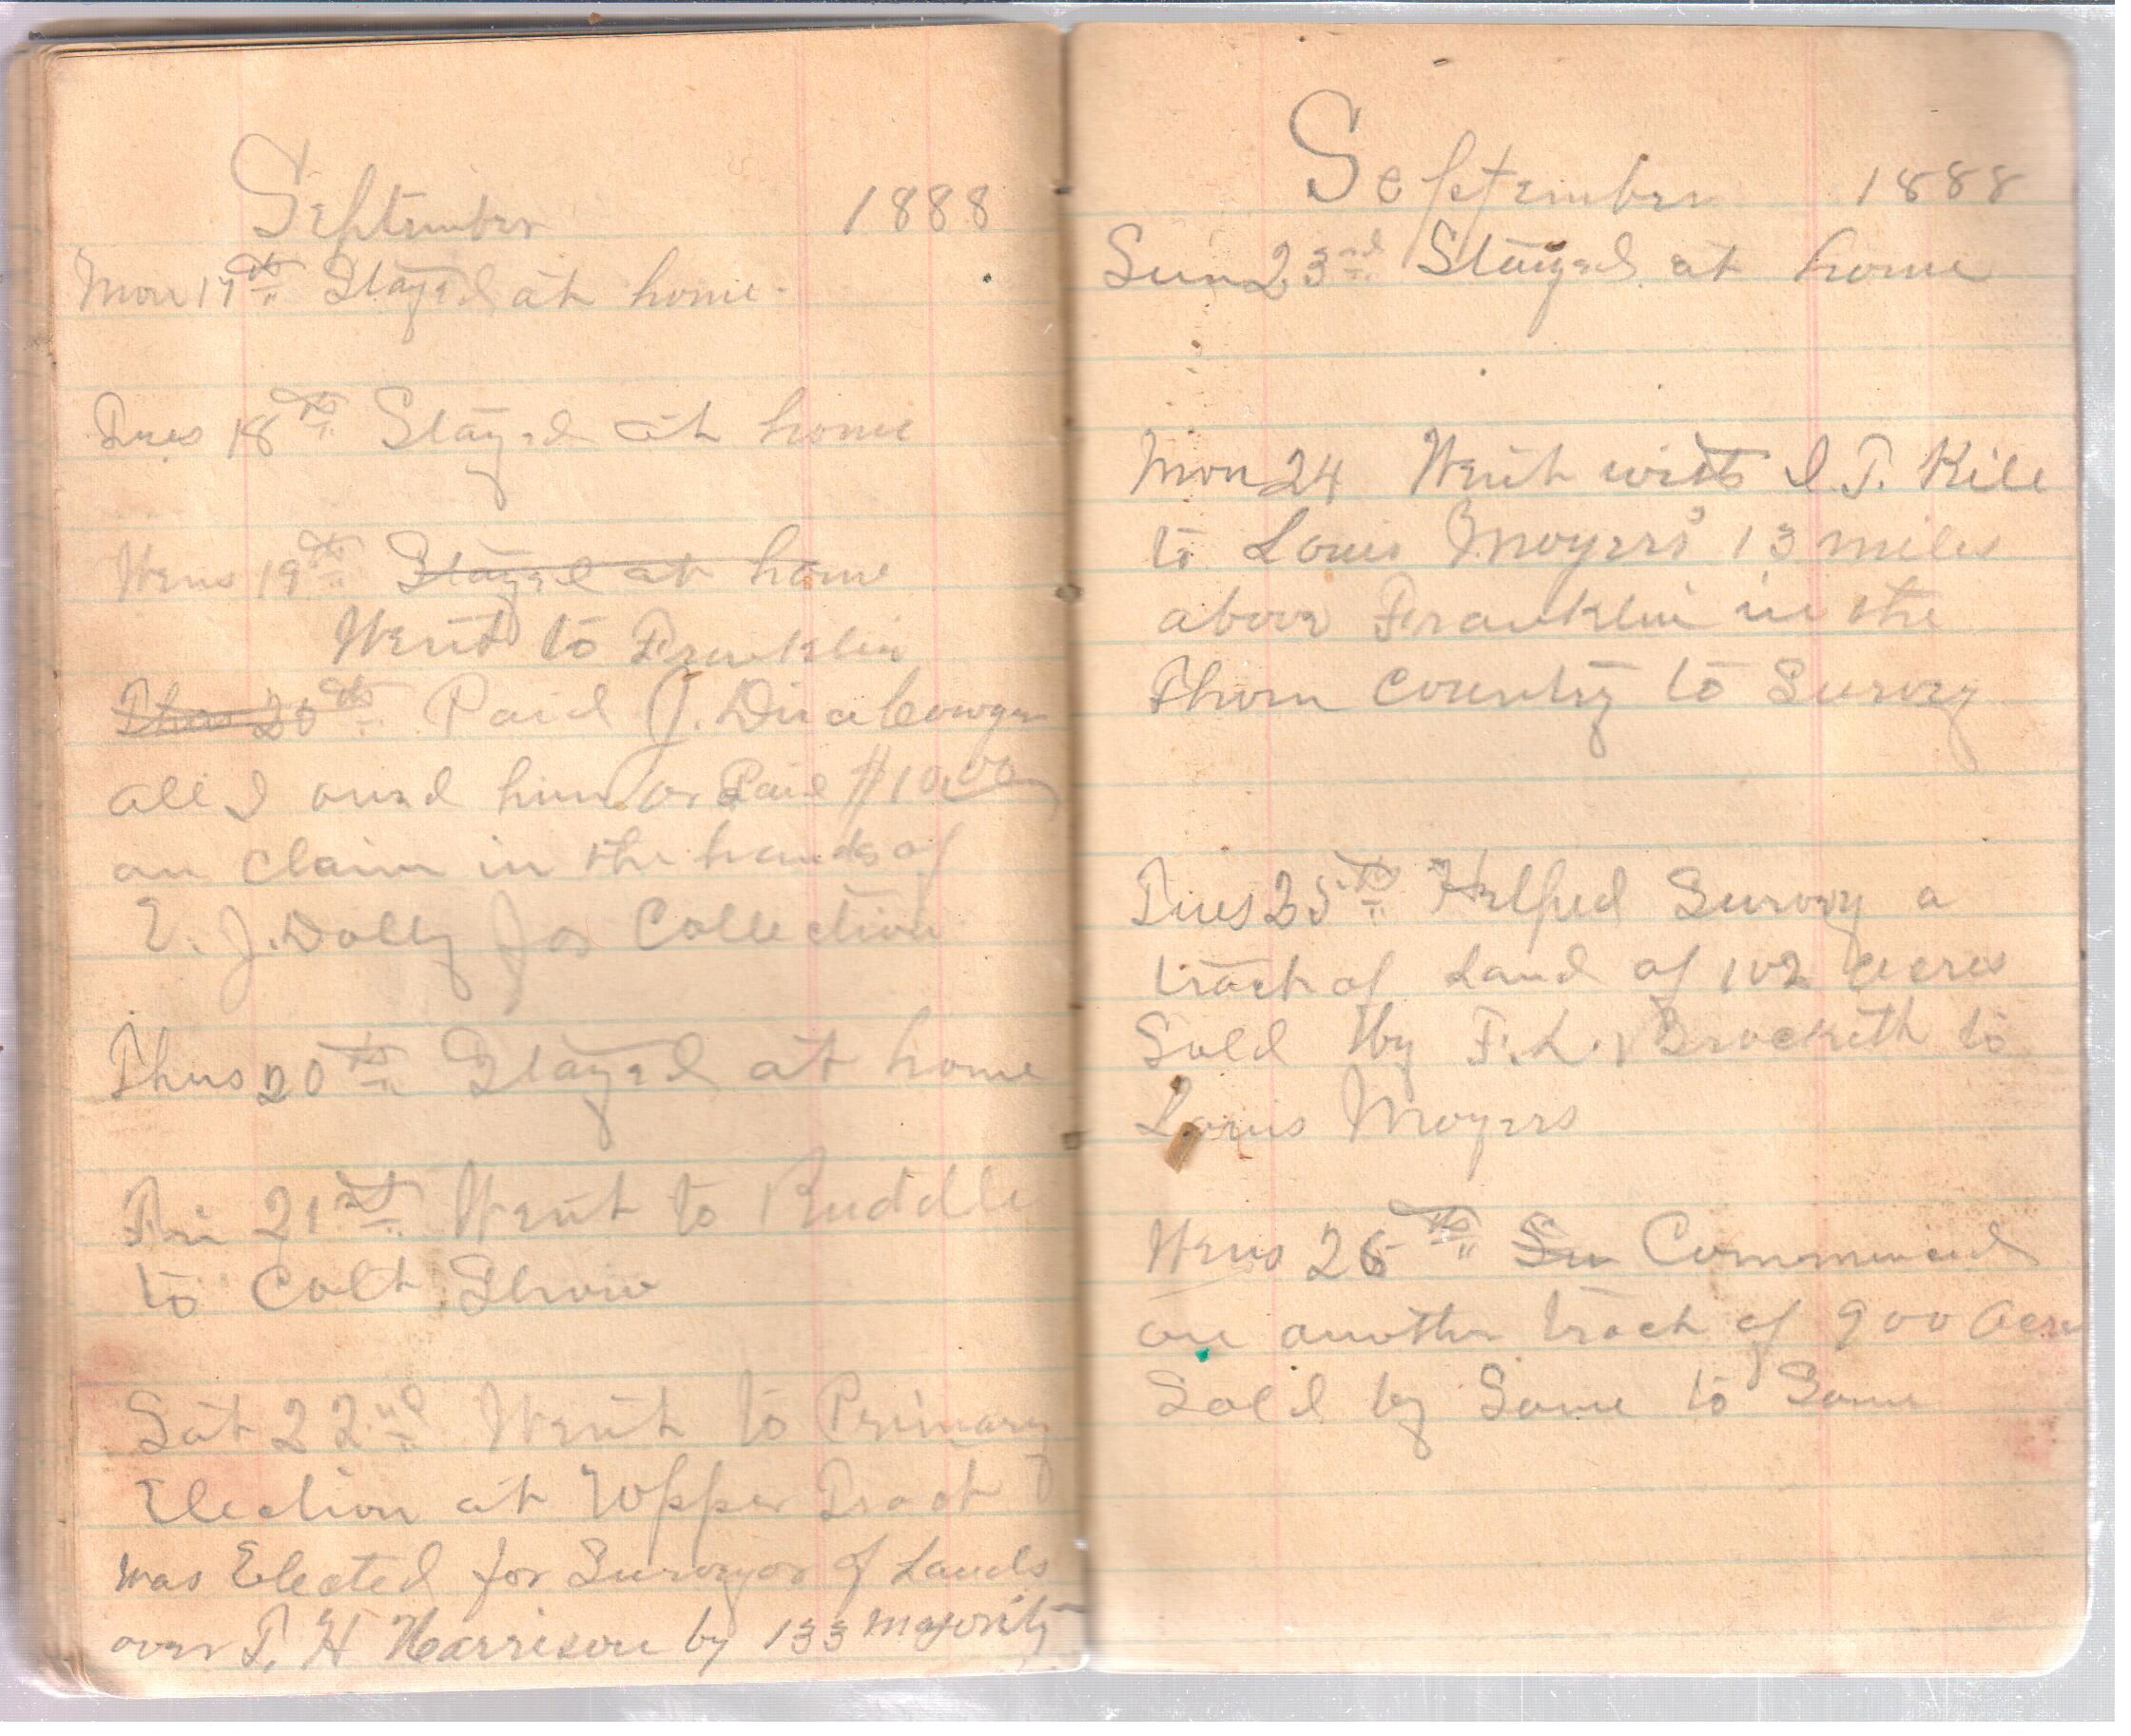 September 1888
Mon 17th Stayed at home.
Tues 18th Stayed at home
Wens 19th Stayed at home
Went to Franklin
Thus 20th Paid J. Dice Cowger
all I owed him or Paid $10.00
on claim in the hands of
E. J. Dolly for Collection
Thus 20th Stayed at home
Fri 21st Went to Ruddle
to Colt Show
Sat 22nd Went to Primary
Election at Upper Tract
was Elected for Surveyor of Lands
over T. H Harrison by 133 majority
September 1888
Sun 23rd Stayed at home
Mon 24 Went with I. T. Kile
to Louis Moyers' 13 miles
above Franklin in the
Thorn Country to Survey
Tues 25th Helped Survey a
tract of Land of 102 acres
Sold by F. L.
to
Louis Moyers
Wens 26th Su Commenced
on another track of 900 acres
Sold by Same to Same